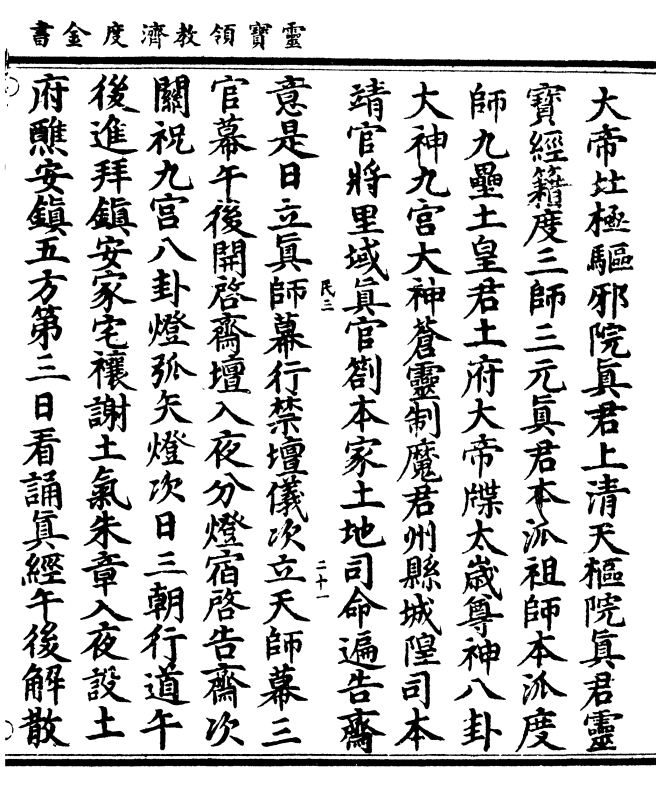 靈寶領教濟度金書
大帝北極驅邪院眞君上清天樞院眞君靈
寶經籍度三師三元眞君本派祖師本派度
師九壘土皇君土府大帝牒太歲尊神八卦
大神九宮大神蒼靈制魔君州縣城隍司本
靖官將里域眞官劄本家土地司命遍告齋
民三
二十一
意是日立眞師幕行禁壇儀次立天師幕三
官幕午後開啓齋壇入夜分燈宿啓告齋次
關祝九宮八卦燈弧矢燈次日三朝行道午
後進拜鎭安家宅禳謝土氣朱章入夜設土
府醮安鎭五方第三日看誦眞經午後解散